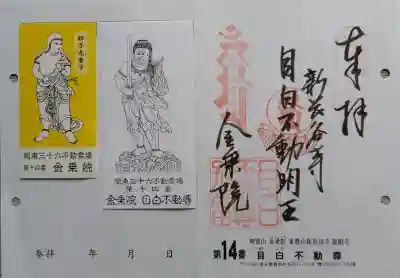 獅子光童子
関東三十六不動霊場
第十四番
金乗院
関東三十六不動霊場
第十四番
金乗院 目白不動尊
奉拝
新長谷寺
目白不動明王
金乗院
参拝 年 月 日
第14番 目白不動尊